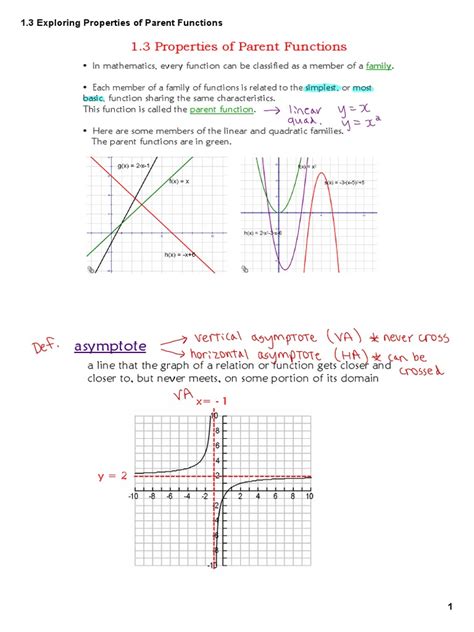 1.3 Exploring Properties of Parent Functions
1.3 Properties of Parent Functions
• In mathematics, every function can be classified as a member of a family.
• Each member of a family of functions is related to the simplest, or most
basic, function sharing the same characteristics.
This function is called the parent function. → linear y = x
quad. y = x²
• Here are some members of the linear and quadratic families.
The parent functions are in green.
f(x) = x
h(x) = -x+6
f(x) = x²
Def. asymptote → vertical asymptote (VA) * never cross
→ horizontal asymptote (HA) * can be
crossed
a line that the graph of a relation or function gets closer and
closer to, but never meets, on some portion of its domain
VA
x = - 1
y = 2
10
8
6
4
2
-10 -8 -6 -4 -2 2 4 6 8 10
-10
1